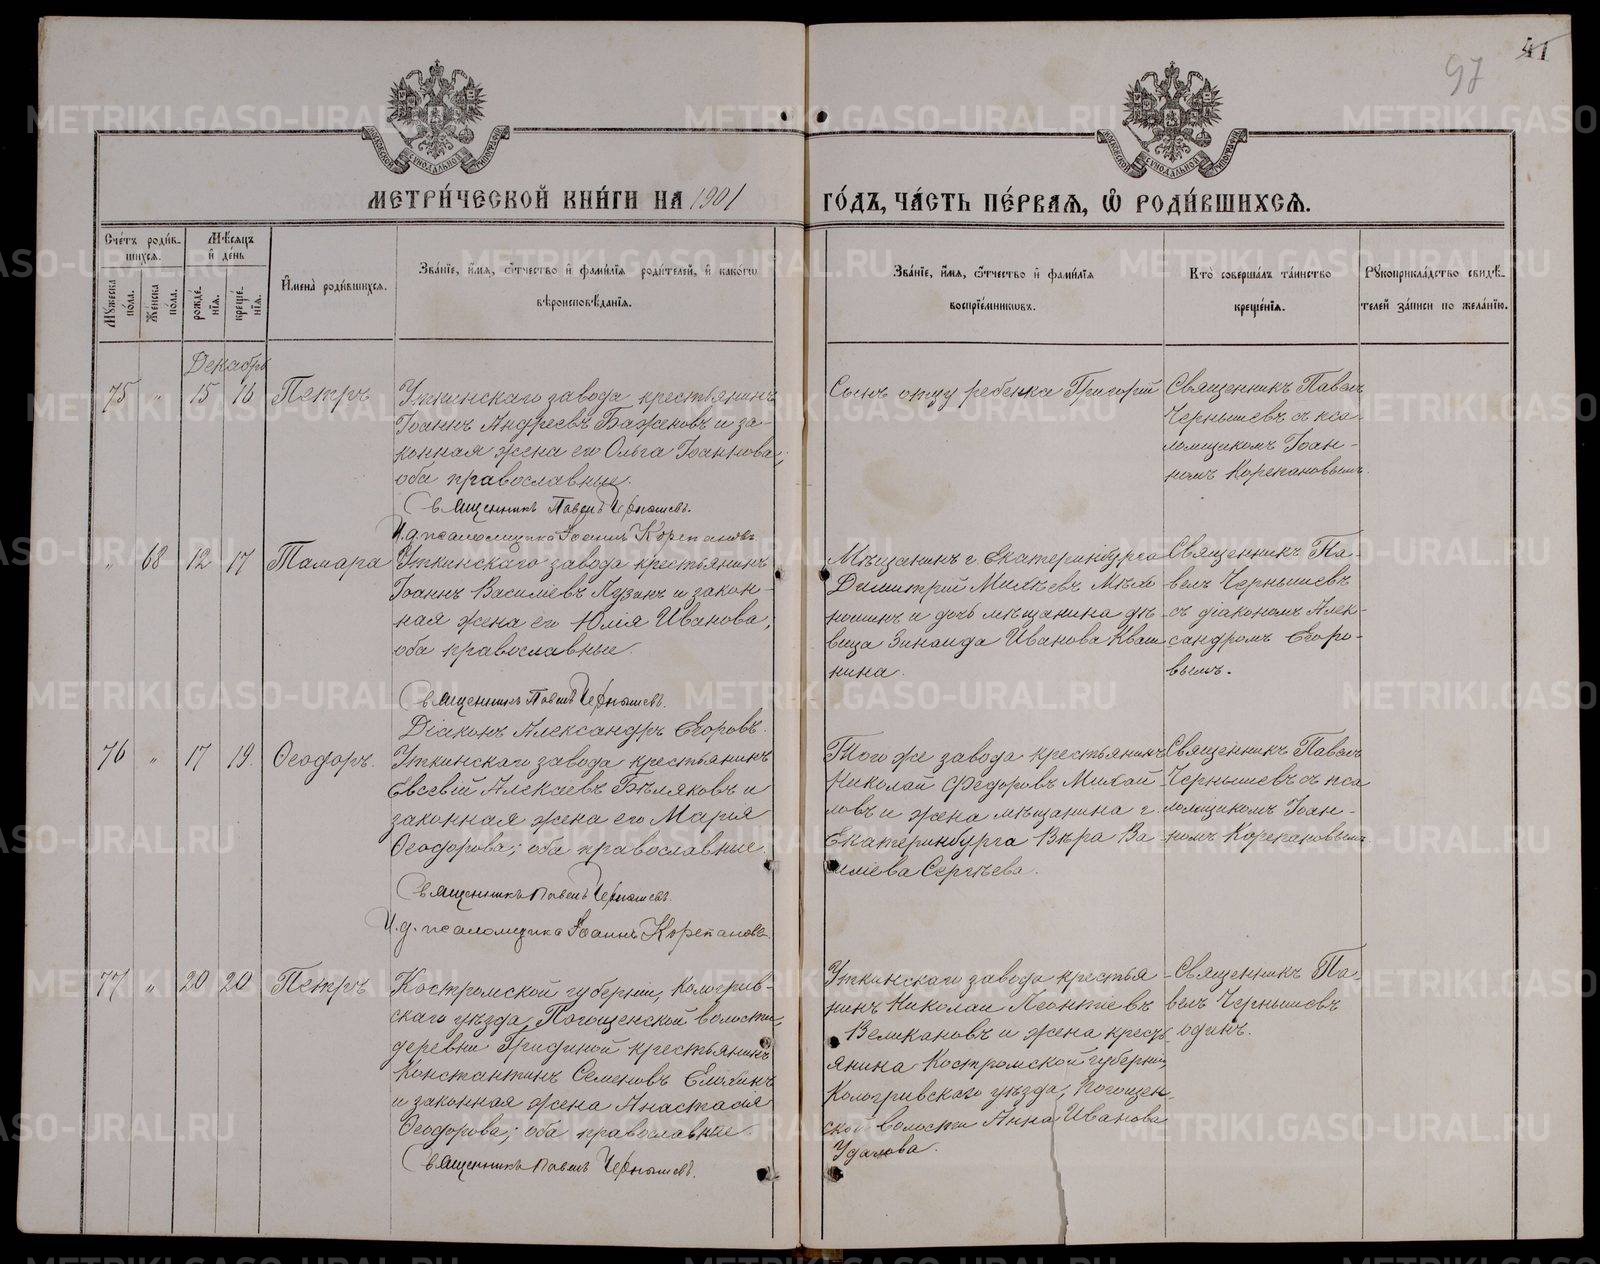 41
97
МЕТРИ́ЧЕСКОЙ КНИ́ГИ НА 1901
ГО́ДЪ, ЧА́СТЬ ПЕ́РВАЯ, Ѡ РОДИ́ВШИХСЯ.
Сче́тъ роди́в-
шихся.
Мꙋжеска по́ла.
Же́нска по́ла.
Мѣ́сяцъ
и҆ де́нь
рожде́нїя.
креще́нїя.
И҆мена̀ роди́вшихся.
Зва́нїе, и҆́мя, ѻ҆́тчество и҆ фами́лїя роди́телей, и҆ како́гѡ
вѣроисповѣ́данїя.
Зва́нїе, и҆́мя, ѻ҆́тчество и҆ фами́лїя
воспрїе́мникѡвъ.
Кто̀ соверша́лъ та́инство
креще́нїя.
Рꙋкоприкла́дство свидѣ́-
телей за́писи по жела́нїю.
Декабрь
75 " 15 16 Петръ
Уткинскаго завода крестьянинъ
Іоаннъ Андреевъ Баженовъ и за-
конная жена его Ольга Іоаннова;
оба православные.
Священникъ Павелъ Чернышевъ.
И. д. псаломщика Іоаннъ Корепановъ.
Сынъ отцу ребенка Григорій
Священникъ Павелъ
Чернышевъ съ пса
ломщикомъ Іоан-
номъ Корепановымъ.
" 68 12 17 Тамара
Уткинскаго завода крестьянинъ
Іоаннъ Васильевъ Пузинъ и закон-
ная жена его Юлія Иванова,
оба православные.
Священникъ Павелъ Чернышевъ.
Діаконъ Александръ Егоровъ.
Мѣщанинъ г. Екатеринбурга
Димитрій
и дочь мѣщанина дѣ-
вица Зинаида Иванова Кваш
нина.
Священникъ Па-
велъ Чернышевъ
съ діакономъ Алек-
сандромъ Егоро-
вымъ.
76 " 17 19. Ѳеодоръ.
Уткинскаго завода крестьянинъ
Евсевій Алексѣевъ Бѣляковъ и
законная жена его Марія
Ѳеодорова; оба православные.
Священникъ Павелъ Чернышевъ.
И. д. псаломщика Іоаннъ Корепановъ.
Того же завода крестьянинъ
Николай Федоровъ Михай
ловъ и жена мѣщанина г.
Екатеринбурга Вѣра Ва
силіева Сергѣева.
Священникъ Павелъ
Чернышевъ съ пса
ломщикомъ Іоан-
номъ Корепановымъ
77 " 20 20 Петръ
Костромской губерніи, Кологрив-
скаго уѣзда, Погощенской волости,
деревни крестьянинъ
Константинъ Семеновъ
и законная жена Анастасія
Ѳеодорова; оба православные.
Священникъ Павелъ Чернышевъ.
Уткинскаго завода крестья-
нинъ Николай Леонтьевъ
Великановъ и жена кресть
янина Костромской губерніи,
Кологривскаго уѣзда, Погощен-
ской волости Анна Иванова
Удалова.
Священникъ Па-
велъ Чернышевъ
одинъ.
METRIKI.GASO-URAL.RU